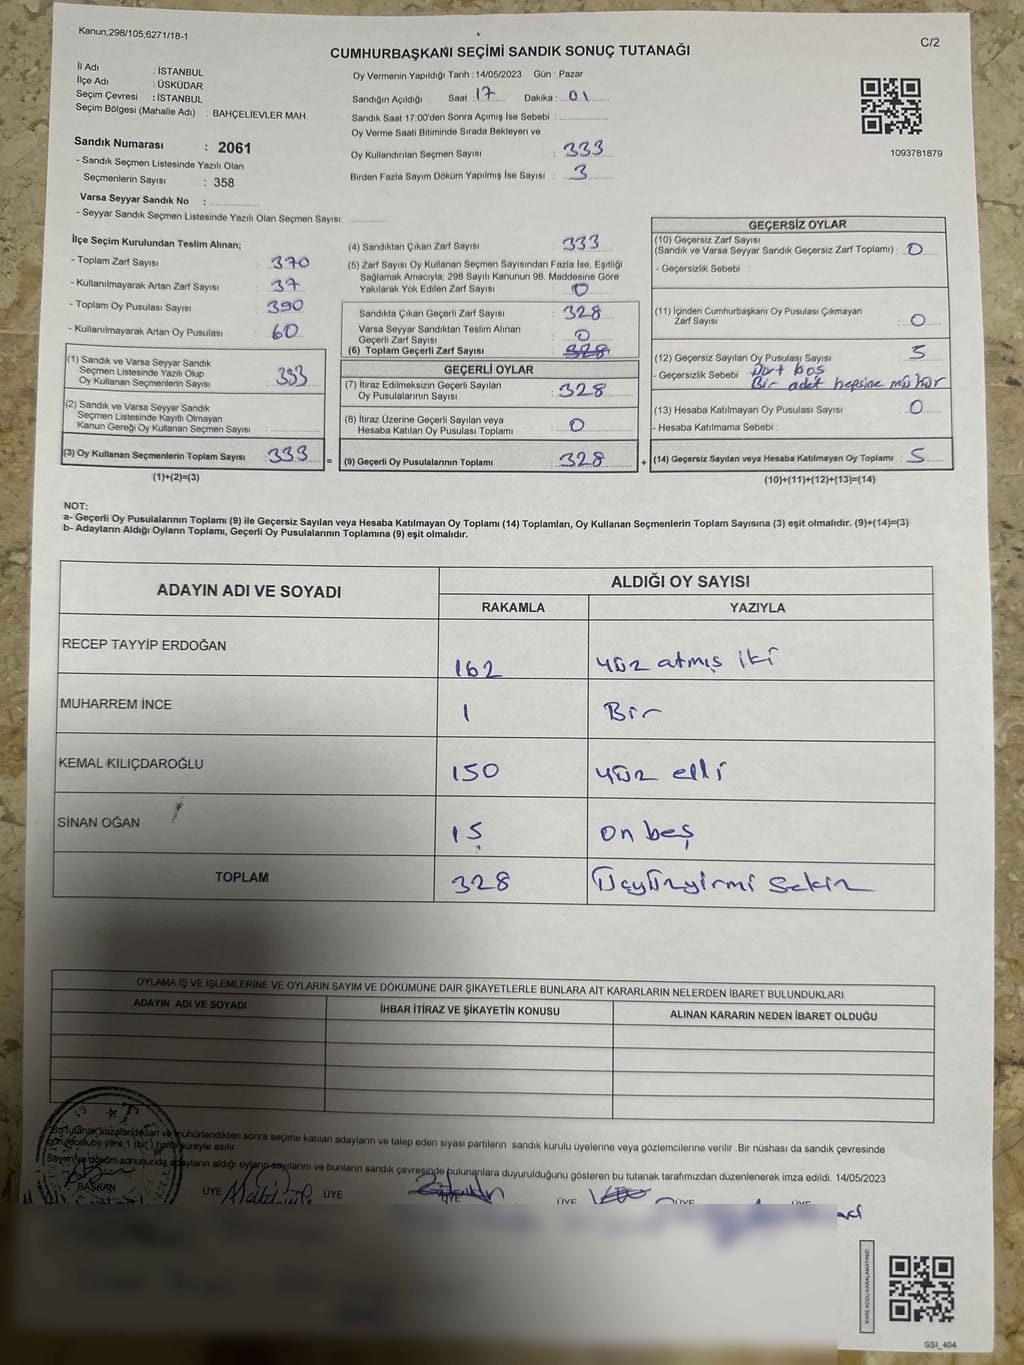 Kanun;298/105;6271/18-1
C/2
CUMHURBAŞKANI SEÇİMİ SANDIK SONUÇ TUTANAĞI
İl Adı : İSTANBUL
İlçe Adı : ÜSKÜDAR
Seçim Çevresi : İSTANBUL
Seçim Bölgesi (Mahalle Adı) : BAHÇELİEVLER MAH.
Sandık Numarası : 2061
- Sandık Seçmen Listesinde Yazılı Olan
Seçmenlerin Sayısı : 358
Varsa Seyyar Sandık No :
- Seyyar Sandık Seçmen Listesinde Yazılı Olan Seçmen Sayısı:
Oy Vermenin Yapıldığı Tarih : 14/05/2023 Gün : Pazar
Sandığın Açıldığı Saat : 17 Dakika : 01
Sandık Saat 17:00'den Sonra Açımış İse Sebebi :
Oy Verme Saati Bitiminde Sırada Bekleyen ve
Oy Kullandırılan Seçmen Sayısı : 333
Birden Fazla Sayım Döküm Yapılmış İse Sayısı : 3
1093781879
İlçe Seçim Kurulundan Teslim Alınan;
- Toplam Zarf Sayısı : 370
- Kullanılmayarak Artan Zarf Sayısı : 37
- Toplam Oy Pusulası Sayısı : 390
- Kullanılmayarak Artan Oy Pusulası : 60
(1) Sandık ve Varsa Seyyar Sandık
Seçmen Listesinde Yazılı Olup
Oy Kullanan Seçmenlerin Sayısı : 333
(2) Sandık ve Varsa Seyyar Sandık
Seçmen Listesinde Kayıtlı Olmayan
Kanun Gereği Oy Kullanan Seçmen Sayısı :
(3) Oy Kullanan Seçmenlerin Toplam Sayısı : 333 =
(1)+(2)=(3)
(4) Sandıktan Çıkan Zarf Sayısı : 333
(5) Zarf Sayısı Oy Kullanan Seçmen Sayısından Fazla İse, Eşitliği
Sağlamak Amacıyla, 298 Sayılı Kanunun 98. Maddesine Göre
Yakılarak Yok Edilen Zarf Sayısı : 0
Sandıkta Çıkan Geçerli Zarf Sayısı : 328
Varsa Seyyar Sandıktan Teslim Alınan
Geçerli Zarf Sayısı : 0
(6) Toplam Geçerli Zarf Sayısı : 328
GEÇERLİ OYLAR
(7) İtiraz Edilmeksizin Geçerli Sayılan
Oy Pusulalarının Sayısı : 328
(8) İtiraz Üzerine Geçerli Sayılan veya
Hesaba Katılan Oy Pusulası Toplamı : 0
(9) Geçerli Oy Pusulalarının Toplamı : 328 +
GEÇERSİZ OYLAR
(10) Geçersiz Zarf Sayısı
(Sandık ve Varsa Seyyar Sandık Geçersiz Zarf Toplamı) : 0
- Geçersizlik Sebebi :
(11) İçinden Cumhurbaşkanı Oy Pusulası Çıkmayan
Zarf Sayısı : 0
(12) Geçersiz Sayılan Oy Pusulası Sayısı : 5
- Geçersizlik Sebebi : Dört boş
Bir adet hepsine mühür
(13) Hesaba Katılmayan Oy Pusulası Sayısı : 0
- Hesaba Katılmama Sebebi :
(14) Geçersiz Sayılan veya Hesaba Katılmayan Oy Toplamı : 5
(10)+(11)+(12)+(13)=(14)
NOT:
a- Geçerli Oy Pusulalarının Toplamı (9) ile Geçersiz Sayılan veya Hesaba Katılmayan Oy Toplamı (14) Toplamları, Oy Kullanan Seçmenlerin Toplam Sayısına (3) eşit olmalıdır. (9)+(14)=(3)
b- Adayların Aldığı Oyların Toplamı, Geçerli Oy Pusulalarının Toplamına (9) eşit olmalıdır.
ADAYIN ADI VE SOYADI
ALDIĞI OY SAYISI
RAKAMLA YAZIYLA
RECEP TAYYİP ERDOĞAN 162 yüz atmış iki
MUHARREM İNCE 1 Bir
KEMAL KILIÇDAROĞLU 150 yüz elli
SİNAN OĞAN 15 on beş
TOPLAM 328 Üçyüzyirmi sekiz
OYLAMA İŞ VE İŞLEMLERİNE VE OYLARIN SAYIM VE DÖKÜMÜNE DAİR ŞİKAYETLERLE BUNLARA AİT KARARLARIN NELERDEN İBARET BULUNDUKLARI
ADAYIN ADI VE SOYADI İHBAR İTİRAZ VE ŞİKAYETİN KONUSU ALINAN KARARIN NEDEN İBARET OLDUĞU
Bu tutanak imzalandıktan ve mühürlendikten sonra seçime katılan adayların ve talep eden siyasi partilerin sandık kurulu üyelerine veya gözlemcilerine verilir. Bir nüshası da sandık çevresinde
görülecek bir yere 1 (bir) hafta süreyle asılır
Sayım ve döküm sonucunda adayların aldığı oyların sayılarını ve bunların sandık çevresinde bulunanlara duyurulduğunu gösteren bu tutanak tarafımızdan düzenlenerek imza edildi. 14/05/2023
BAŞKAN ÜYE ÜYE ÜYE ÜYE ÜYE ÜYE
KARE KODU KARALAMAYINIZ!
SSI_404